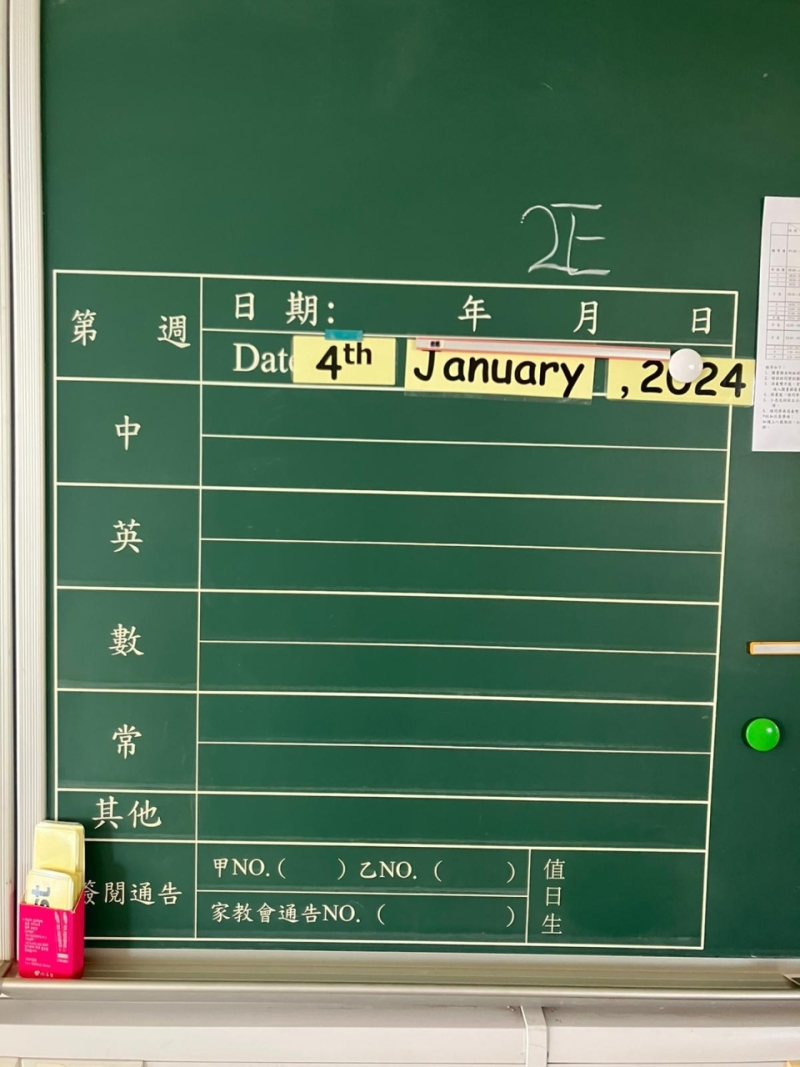 2E
第 週
日 期: 年 月 日
Date
4th January , 2024
中
英
數
常
其他
簽閱通告
甲NO.( ) 乙NO. ( )
家教會通告NO. ( )
值日生
st